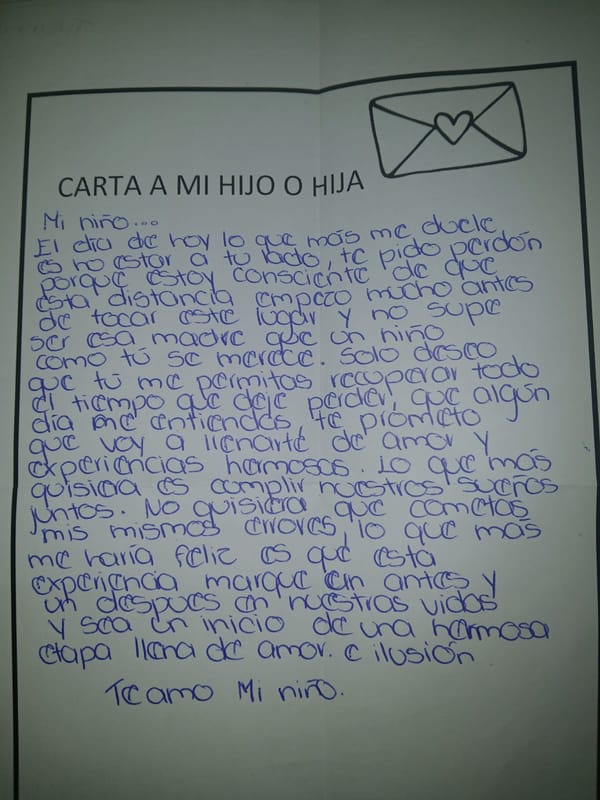 CARTA A MI HIJO O HIJA
Mi niño...
El día de hoy lo que más me duele
es no estar a tu lado, te pido perdón
porque estoy consciente de que
esta distancia empezo mucho antes
de tocar este lugar y no supe
ser esa madre que un niño
como tú se merece. Solo deseo
que tú me permitas recuperar todo
el tiempo que deje perder, que algún
día me entiendas, te prometo
que voy a llenarte de amor y
experiencias hermosas. Lo que más
quisiera es cumplir nuestros sueños
juntos. No quisiera que cometas
mis mismos errores, lo que más
me haría feliz es que esta
experiencia marque un antes y
un despues en nuestras vidas
y sea un inicio de una hermosa
etapa llena de amor. e ilusión
Te amo Mi niño.